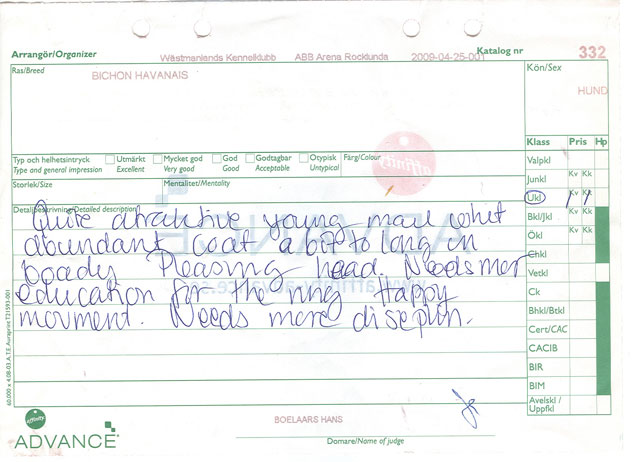 Arrangör/Organizer Västmanlands Kennelklubb ABB Arena Rocklunda 2009-04-25-001 Katalog nr 332
Ras/Breed BICHON HAVANAIS Kön/Sex
HUND
Klass Pris Hp
Valpkl
Typ och helhetsintryck Utmärkt Mycket god God Godtagbar Otypisk Färg/Colour
Type and general impression Excellent Very good Good Acceptable Untypical
Junkl Kv Kk
Storlek/Size Mentalitet/Mentality
Ukl Kv Kk 1 1
Detaljbeskrivning/Detailed description
Bkl/Jkl Kv Kk
Ökl Kv Kk
Quite atraktive young male whet
abundant coat a bit to long in
boady Pleasing head. Needs mer
education for the ring Happy
movment. Needs more diseplin.
Chkl
Vetkl
Ck
Bhkl/Btkl
Cert/CAC
CACIB
BIR
BIM
Avelskl / Uppfkl
60.000 x 4.08-03 A.T.E. Auraprint T21593-001
affinity
ADVANCE
BOELAARS HANS
Domare/Name of judge